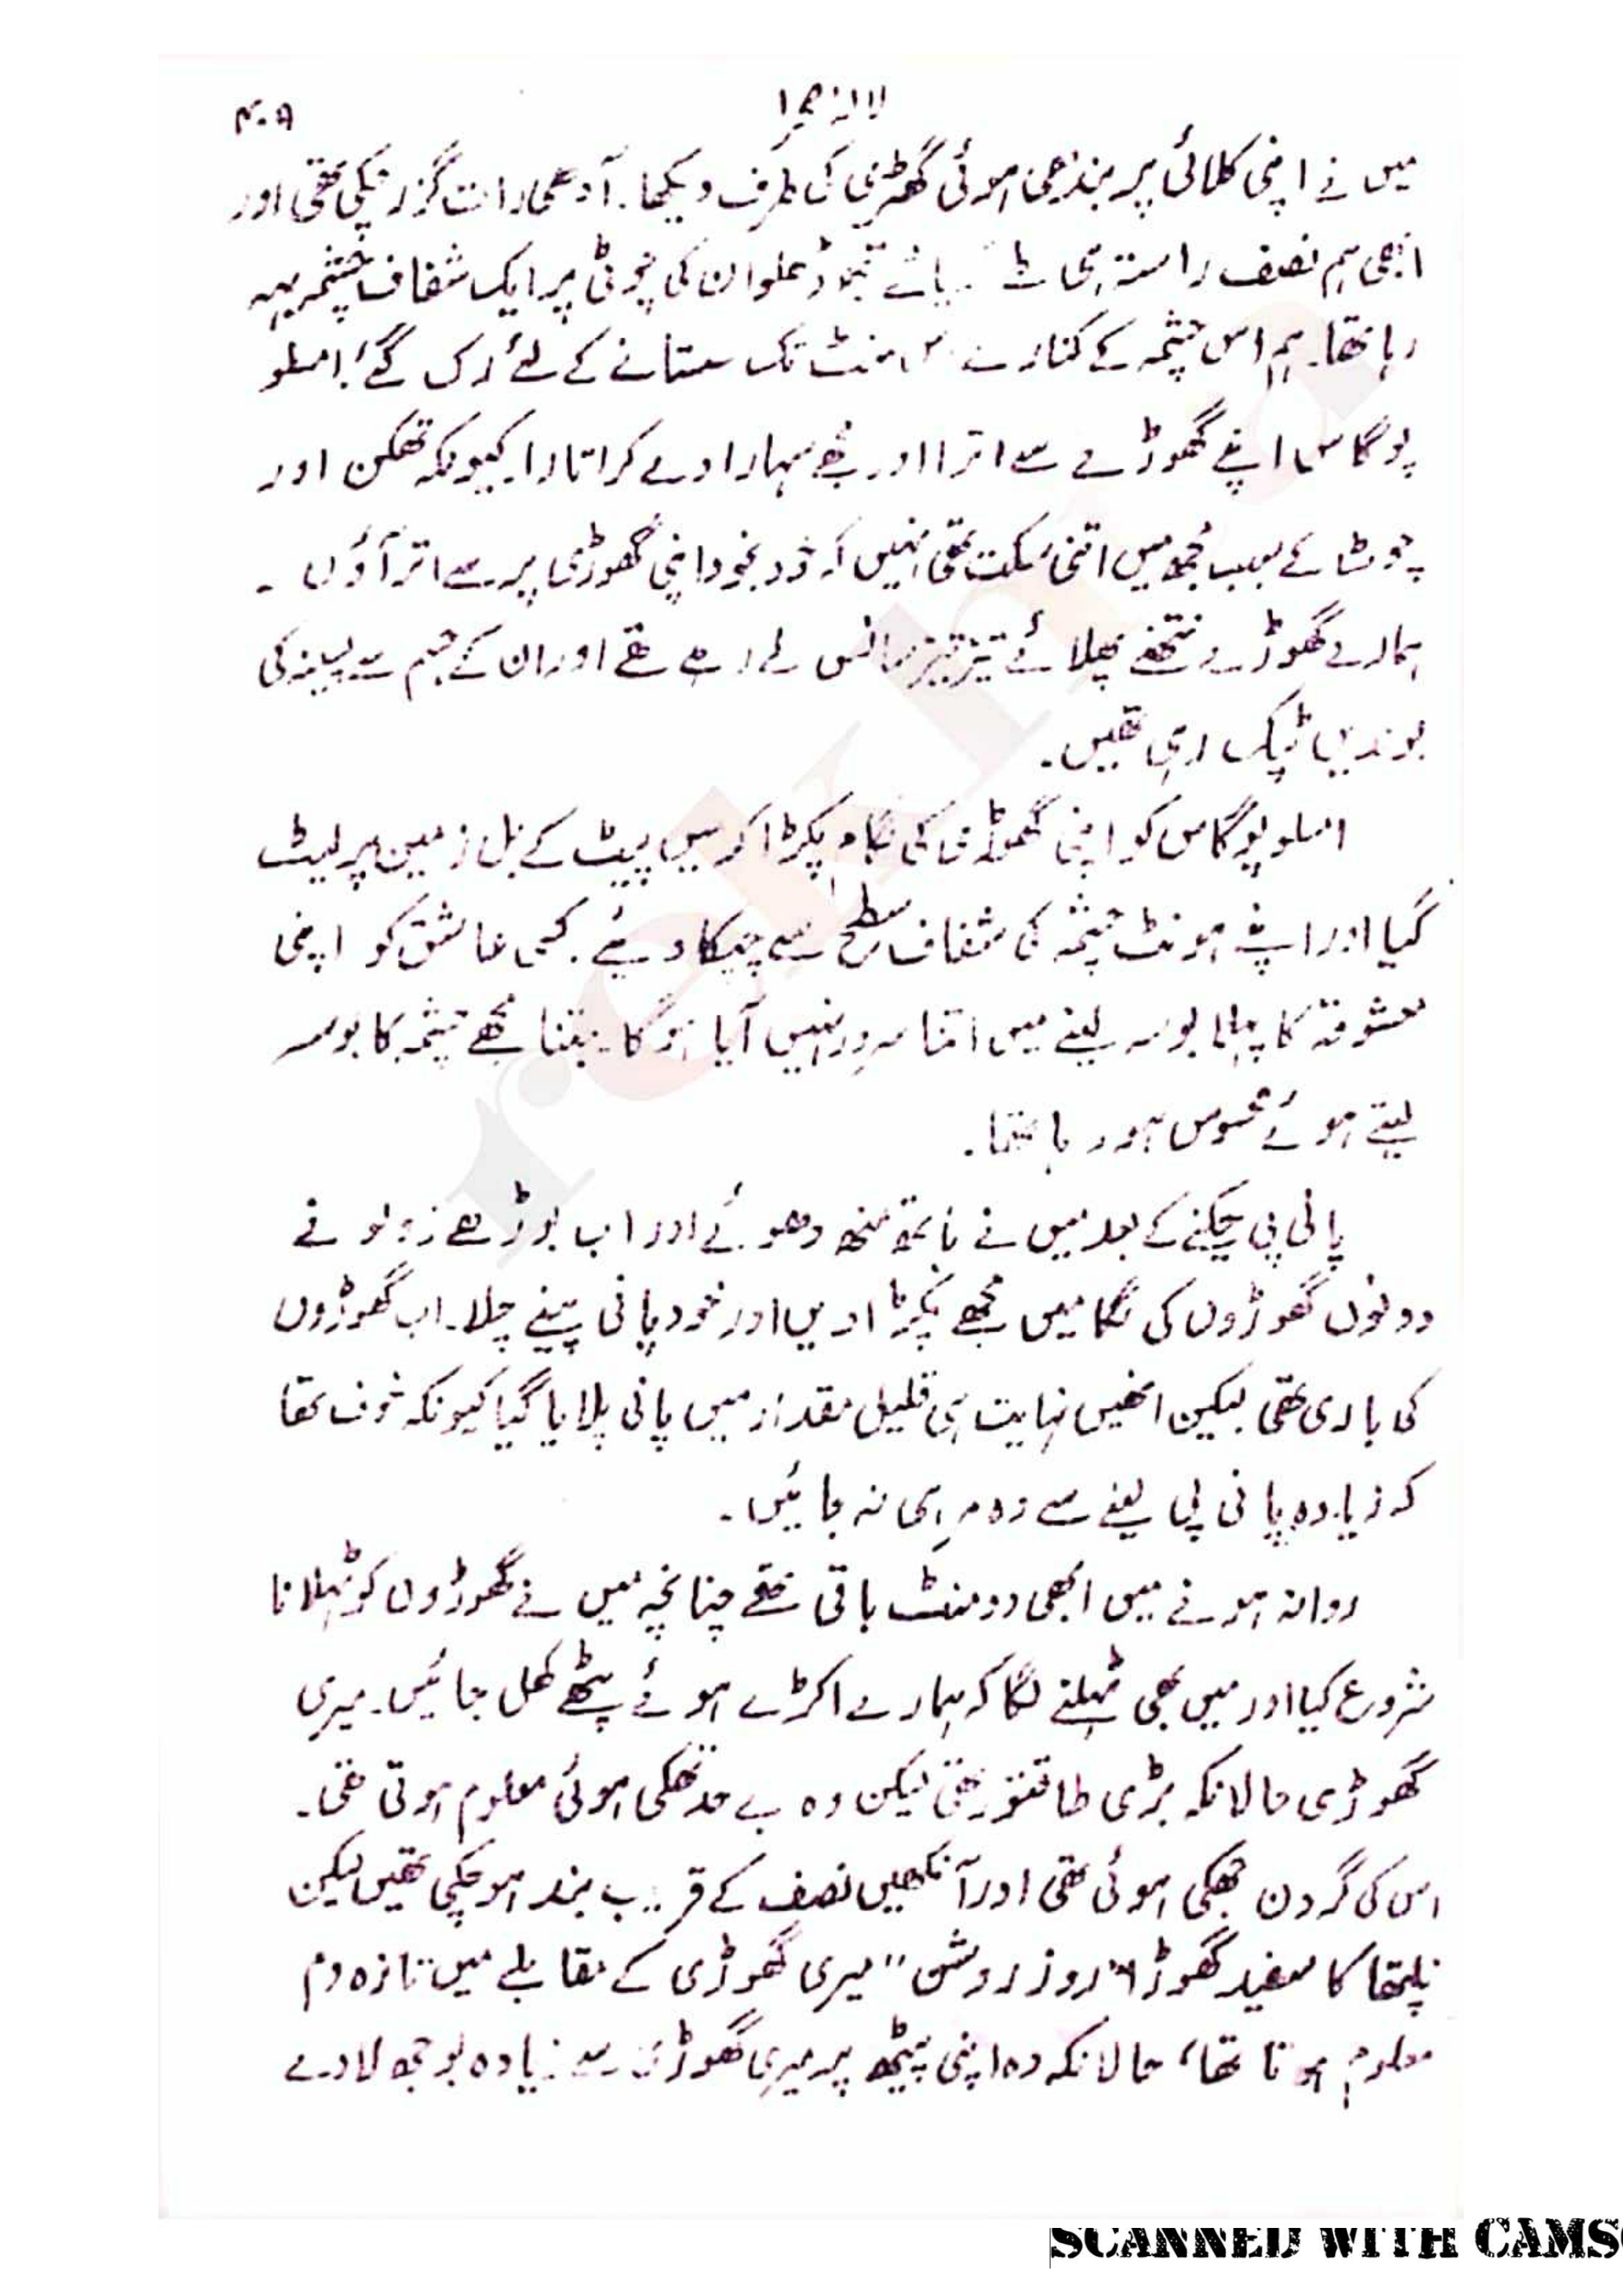 لالہ صحرا
۴۰۵
میں نے اپنی کلائی پر بندھی ہوئی گھڑی کی طرف دیکھا۔ آدھی رات گزر چکی تھی اور
ابھی ہم نصف راستہ ہی طے پائے ڈھلوان کی چوٹی پر ایک شفاف چشمہ بہہ
رہا تھا۔ ہم اس چشمہ کے کنارے دس منٹ تک سستانے کے لئے رک گئے۔ امسلو
پوگاس اپنے گھوڑے سے اترا اور مجھے سہارا دے کر اتارا۔ کیونکہ تھکن اور
چوٹ کے سبب مجھ میں اتنی سکت تھی نہیں کہ خود بخود اپنی گھوڑی پر سے اتر آؤں ۔
ہمارے گھوڑے نتھنے پھلائے تیز تیز سانس لے رہے تھے اور ان کے جسم سے پسینہ کی
بوندیں ٹپک رہی تھیں۔
امسلو پوگاس کو اپنی گھوڑی کی لگام پکڑا کر میں پیٹ کے بل زمین پر لیٹ
گیا اور اپنے ہونٹ چشمہ کی شفاف سطح سے چپکا دیئے۔ کسی عاشق کو اپنی
معشوقہ کا پہلا بوسہ لینے میں اتنا سرور نہیں آیا ہوگا۔ جتنا مجھے چشمہ کا بوسہ
لیتے ہوئے محسوس ہو رہا تھا۔
پانی پی چکنے کے بعد میں نے ہاتھ منھ دھوئے اور اب بوڑھے زولو نے
دونوں گھوڑوں کی لگامیں مجھے پکڑا دیں اور خود پانی پینے چلا۔ اب گھوڑوں
کی باری تھی لیکن انھیں نہایت ہی قلیل مقدار میں پانی پلایا گیا کیونکہ خوف تھا
کہ زیادہ پانی پی لینے سے وہ مر ہی نہ جائیں۔
روانہ ہونے میں ابھی دو منٹ باقی تھے چنانچہ میں نے گھوڑوں کو ٹہلانا
شروع کیا اور میں بھی ٹہلنے لگا کہ ہمارے اکڑے ہوئے پٹھے کھل جائیں۔ میری
گھوڑی حالانکہ بڑی طاقتور تھی لیکن وہ بے حد تھکی ہوئی معلوم ہوتی تھی۔
اس کی گردن جھکی ہوئی تھی اور آنکھیں نصف کے قریب بند ہو چکی تھیں لیکن
نیلپتھا کا سفید گھوڑا "روز روشن" میری گھوڑی کے مقابلے میں تازہ دم
معلوم ہوتا تھا، حالانکہ وہ اپنی پیٹھ پر میری گھوڑی سے زیادہ بوجھ لادے
SCANNED WITH CAMS